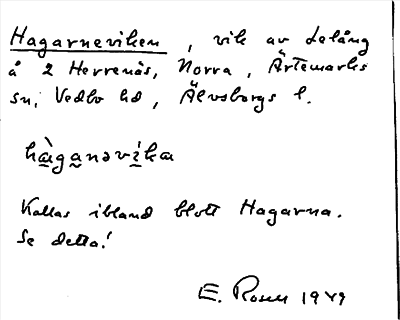 Hagarneviken, vik av Lelång
å 2 Herrenäs, Norra, Ärtemarks
sn, Vedbo hd, Älvsborgs l.
hàganəvíka
Kallas ibland blott Hagarna.
Se detta!
E. Rosell 1949